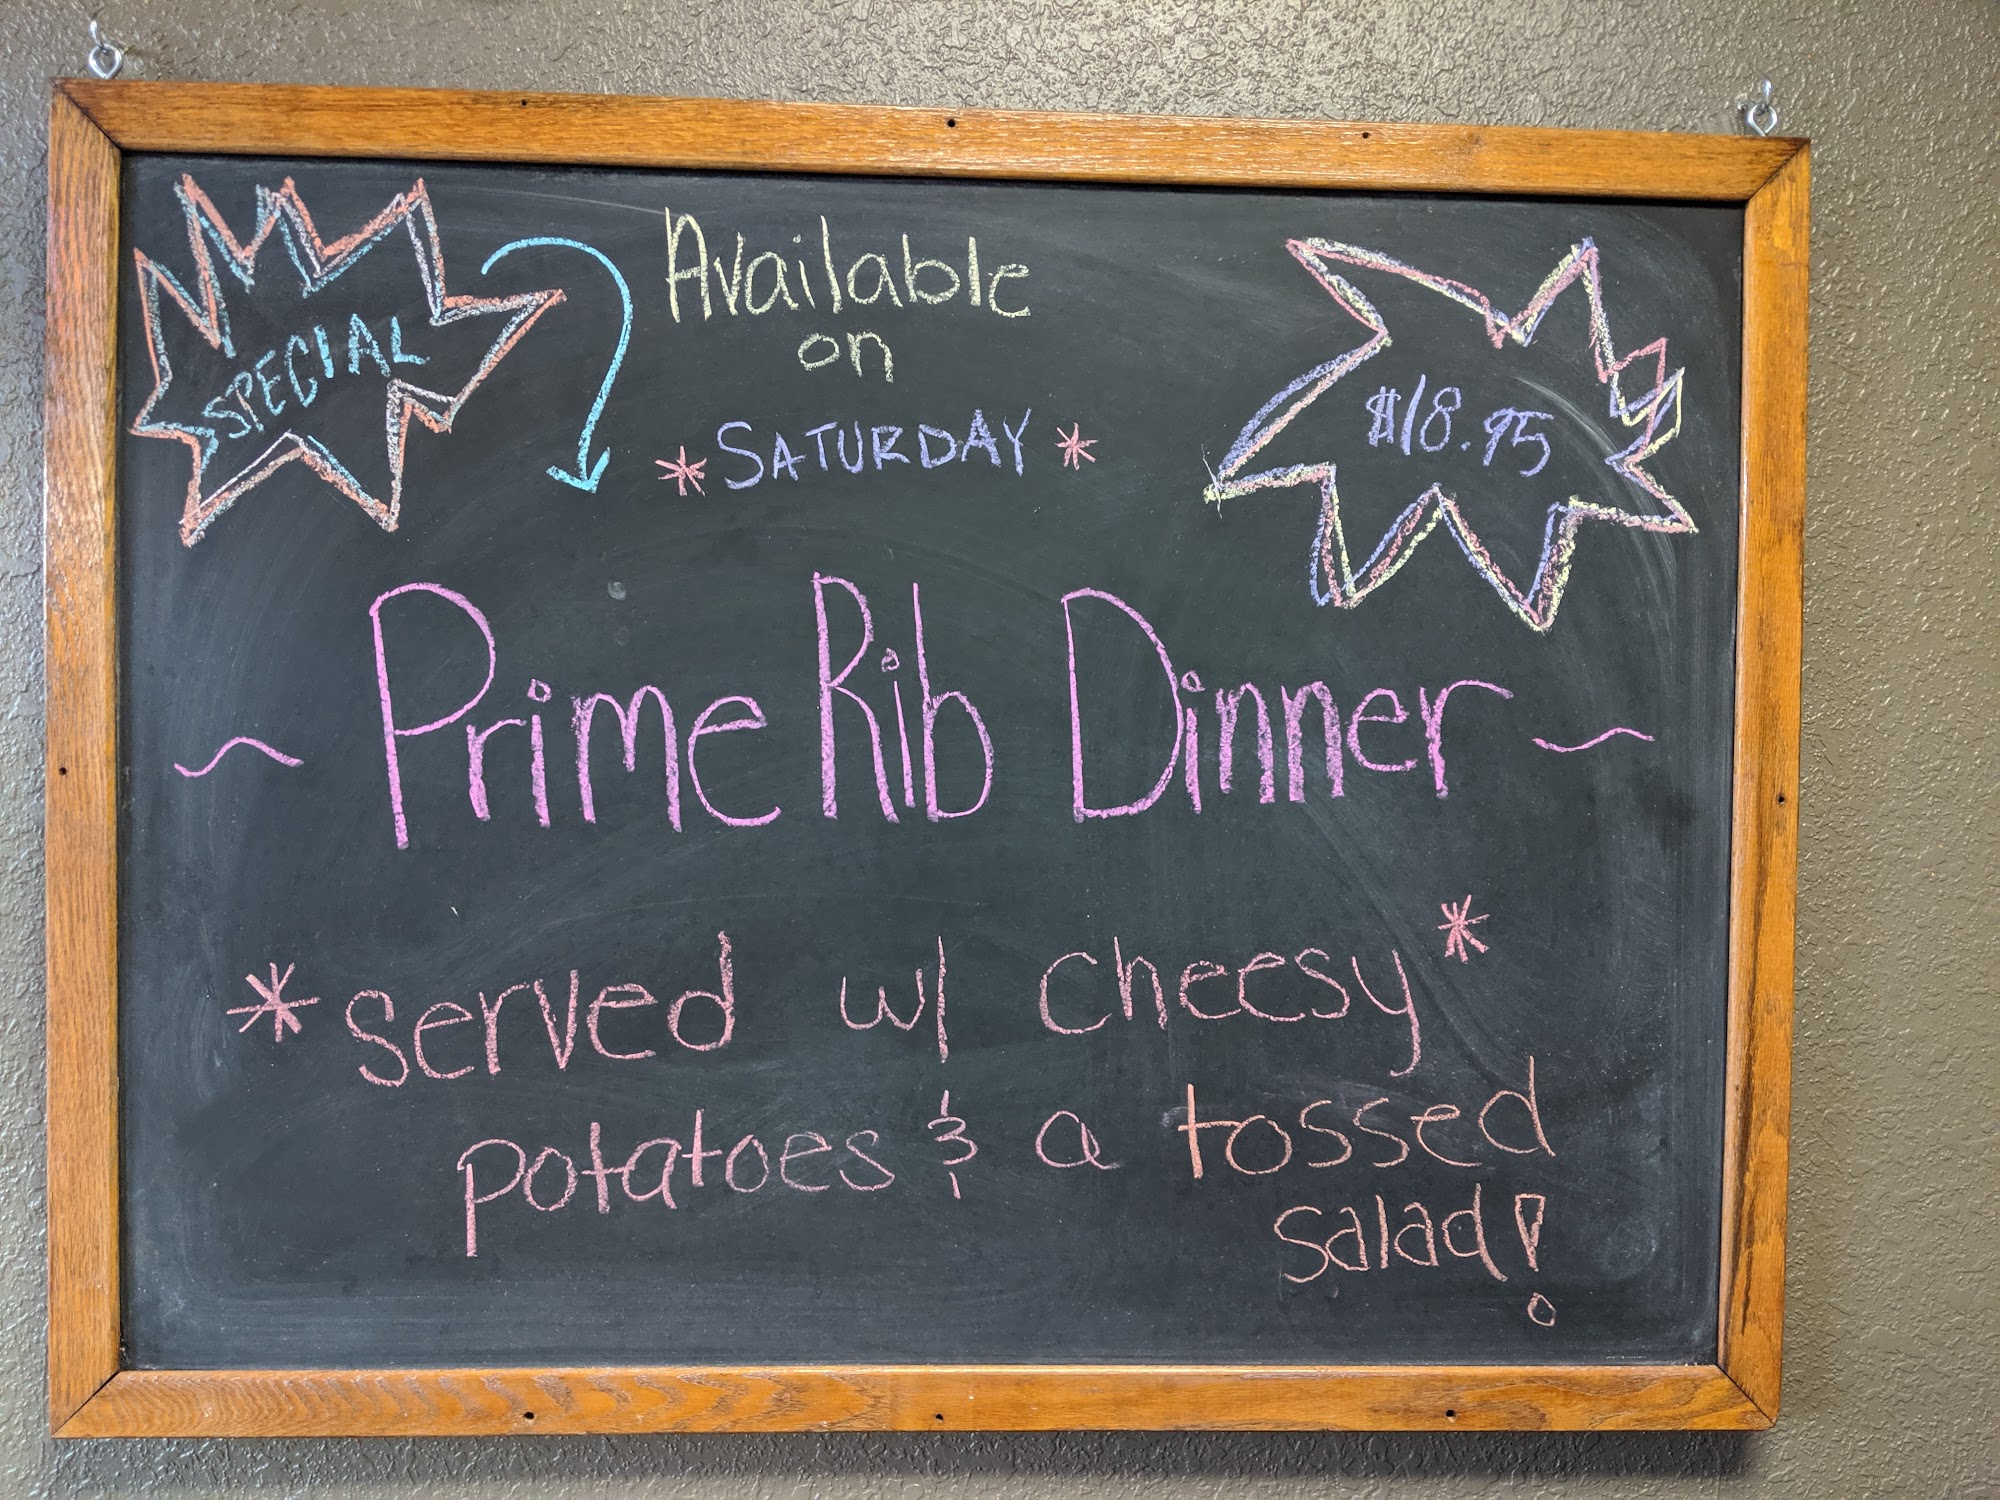 SPECIAL
Available
on
* SATURDAY *
$18.95
~ Prime Rib Dinner ~
* served w/ cheesy *
potatoes & a tossed
salad!